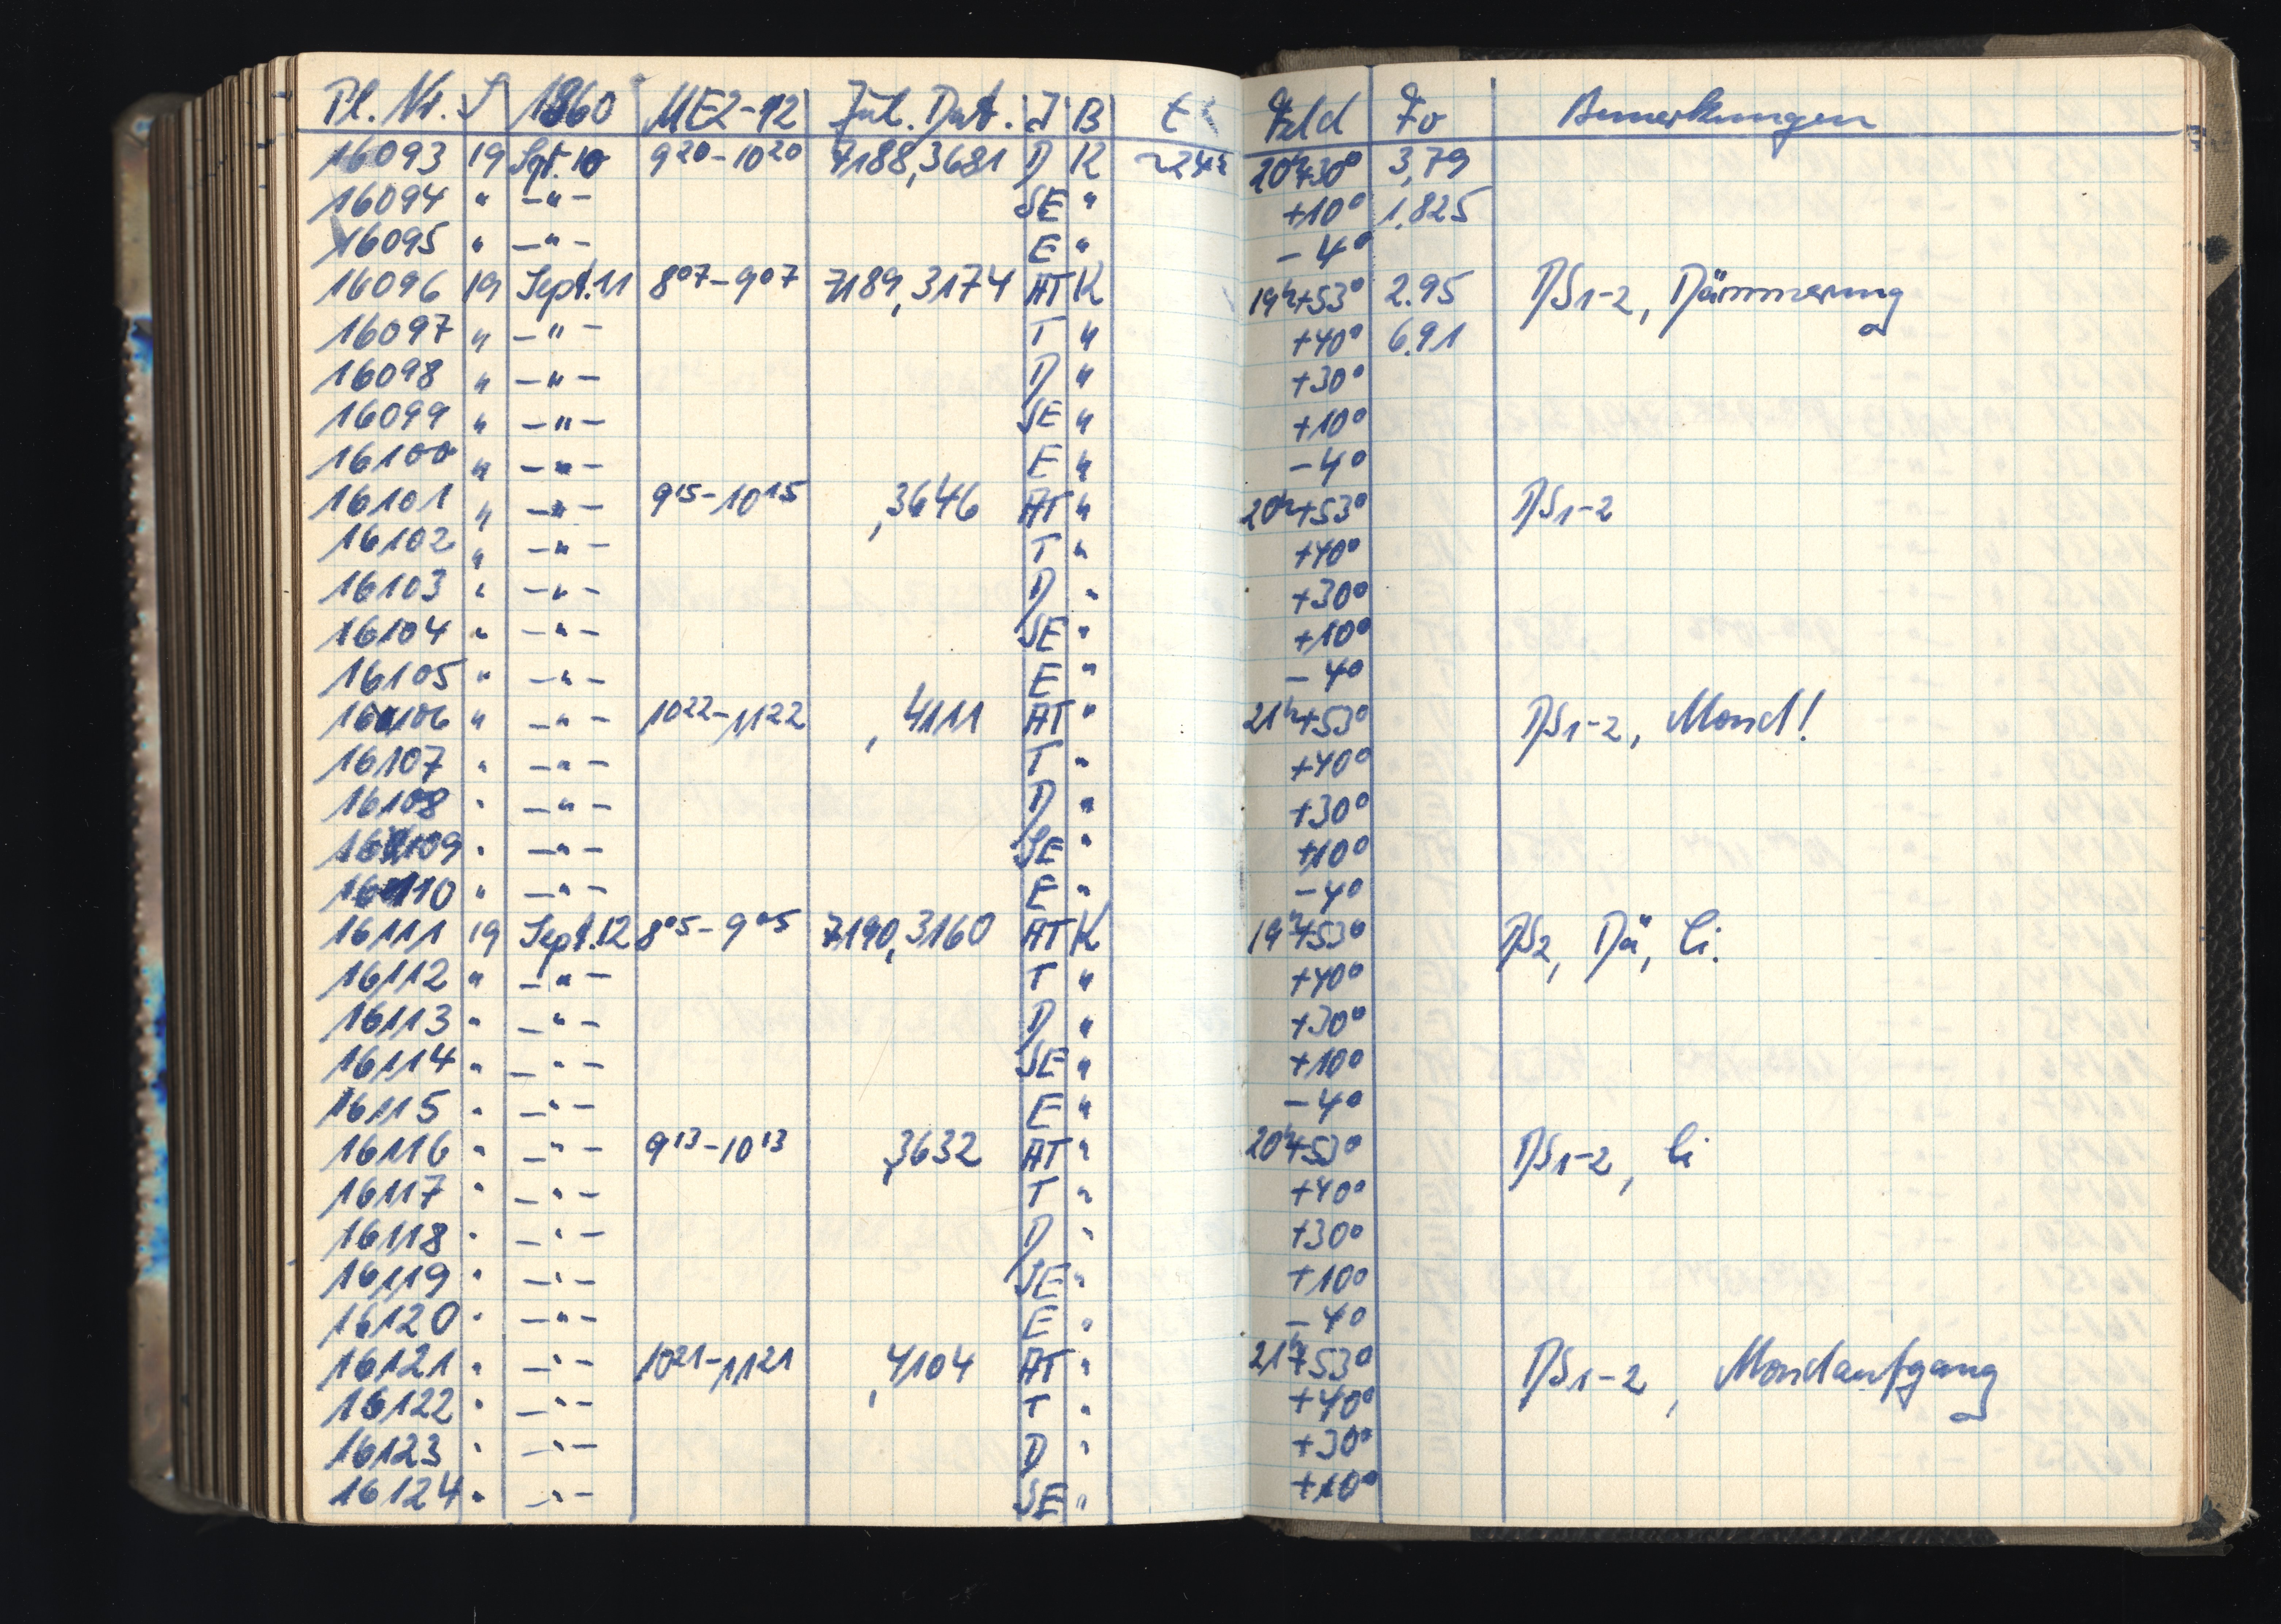 Pl. Nr. S 1960 MEZ-12 Jul. Dat. J B t Feld Fo Bemerkungen
16093 19 Sept. 10 9 20 - 10 20 7188,3681 D K ~24 20h+30° 3,79
16094 " -"- SE " +10° 1.825
16095 " -"- E " -4°
16096 19 Sept. 11 8 07 - 9 07 7189,3174 AT K 19h+53° 2.95 DS1-2, Dämmerung
16097 " -"- T " +40° 6.91
16098 " -"- D " +30°
16099 " -"- SE " +10°
16100 " -"- E " -4°
16101 " -"- 9 15 - 10 15 ,3646 AT " 20h+53° DS1-2
16102 " -"- T " +40°
16103 " -"- D " +30°
16104 " -"- SE " +10°
16105 " -"- E " -4°
16106 " -"- 10 22 - 11 22 ,4111 AT " 21h+53° DS1-2, Mond!
16107 " -"- T " +40°
16108 " -"- D " +30°
16109 " -"- SE " +10°
16110 " -"- E " -4°
16111 19 Sept. 12 8 05 - 9 05 7190,3160 AT K 19h+53° DS2, Dä, Ci.
16112 " -"- T " +40°
16113 " -"- D " +30°
16114 " -"- SE " +10°
16115 " -"- E " -4°
16116 " -"- 9 13 - 10 13 ,3632 AT " 20h+53° DS1-2, Ci
16117 " -"- T " +40°
16118 " -"- D " +30°
16119 " -"- SE " +10°
16120 " -"- E " -4°
16121 " -"- 10 21 - 11 21 ,4104 AT " 21h+53° DS1-2, Mondaufgang
16122 " -"- T " +40°
16123 " -"- D " +30°
16124 " -"- SE " +10°